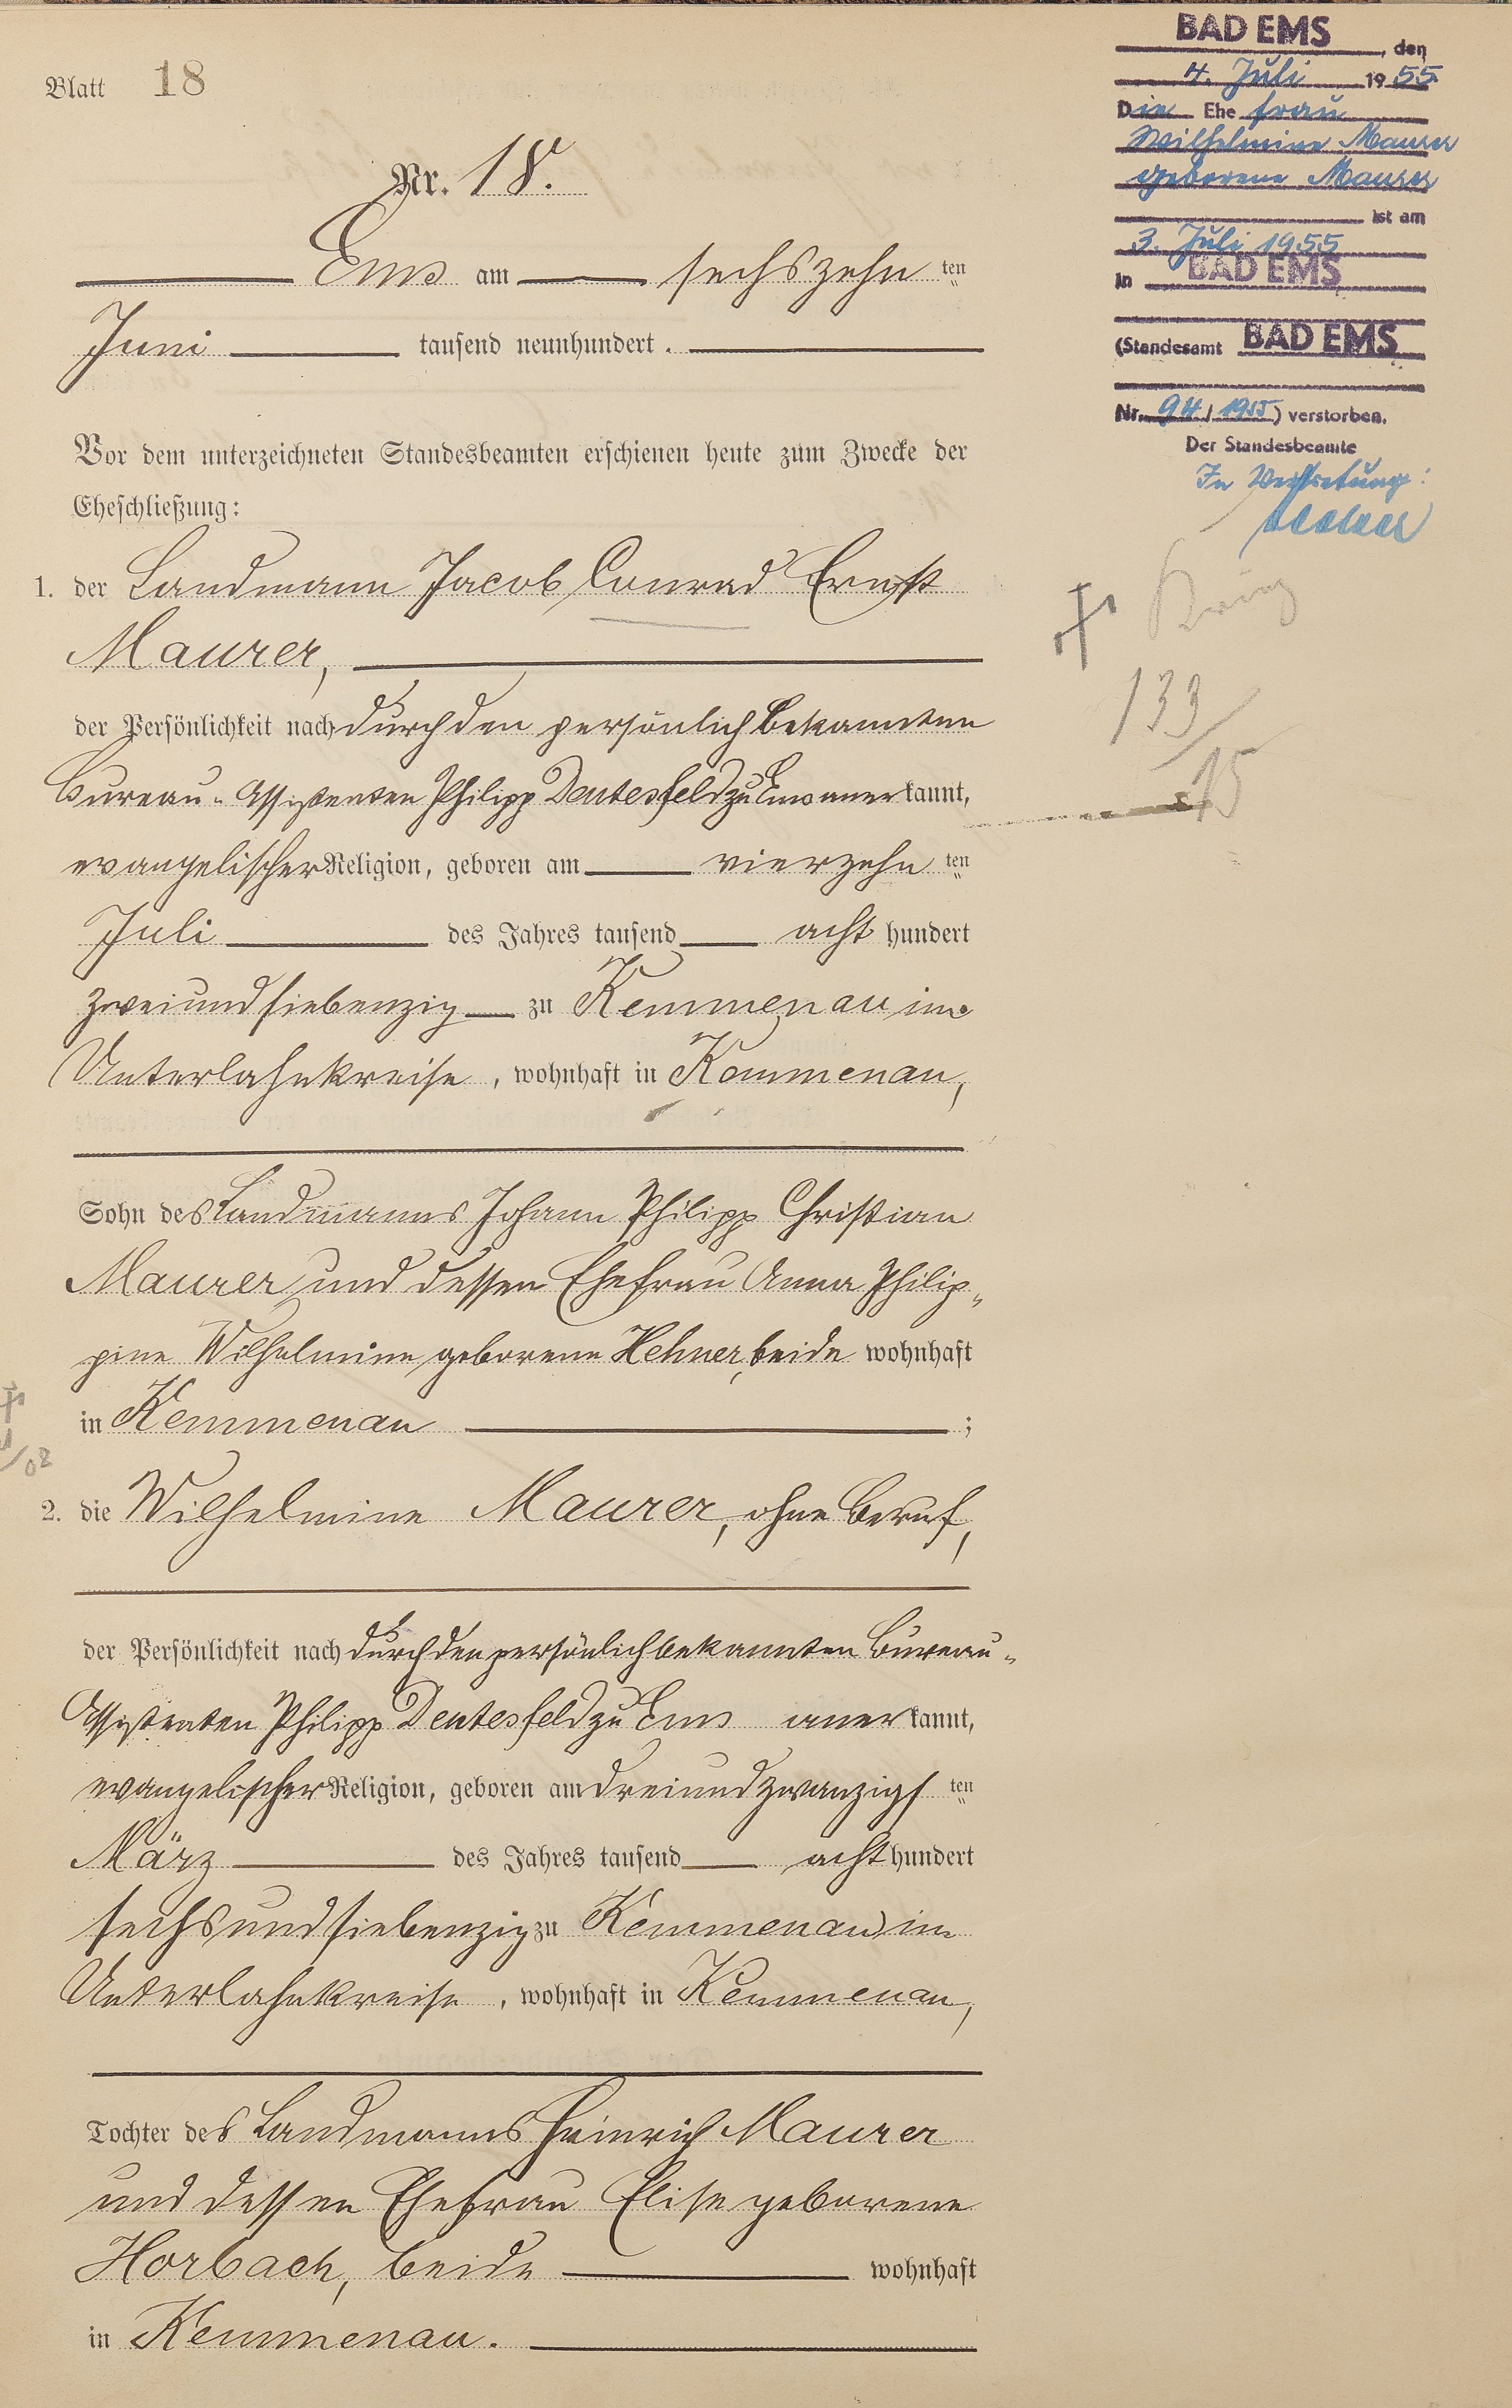 Blatt 18
Nr. 18.
Ems am sechszehn ten
Juni tausend neunhundert.
Vor dem unterzeichneten Standesbeamten erschienen heute zum Zwecke der
Eheschließung:
1. der Landmann Jacob Conrad Ernst
Maurer,
der Persönlichkeit nach durch den persönlich bekannten
Bureau-Assistenten Philipp Dentesfeld zu Ems anerkannt,
evangelischer Religion, geboren am vierzehn ten
Juli des Jahres tausend acht hundert
zweiundsiebenzig zu Kemmenau im
Unterlahnkreise, wohnhaft in Kemmenau,
Sohn des Landmanns Johann Philipp Christian
Maurer und dessen Ehefrau Anna Philip-
pine Wilhelmine geborene Hehner, beide wohnhaft
in Kemmenau ;
2. die Wilhelmine Maurer, ohne Beruf,
der Persönlichkeit nach durch den persönlich bekannten Bureau-
Assistenten Philipp Dentesfeld zu Ems anerkannt,
evangelischer Religion, geboren am dreiundzwanzigs ten
März des Jahres tausend acht hundert
sechsundsiebenzig zu Kemmenau im
Unterlahnkreise, wohnhaft in Kemmenau,
Tochter des Landmanns Heinrich Maurer
und dessen Ehefrau Elise geborene
Horbach, beide wohnhaft
in Kemmenau.
BAD EMS, den
4. Juli 1955
Die Ehefrau
Wilhelmine Maurer
geborene Maurer
ist am
3. Juli 1955
in BAD EMS
(Standesamt BAD EMS
Nr. 94/1955) verstorben.
Der Standesbeamte
In Vertretung:
133/15
/02